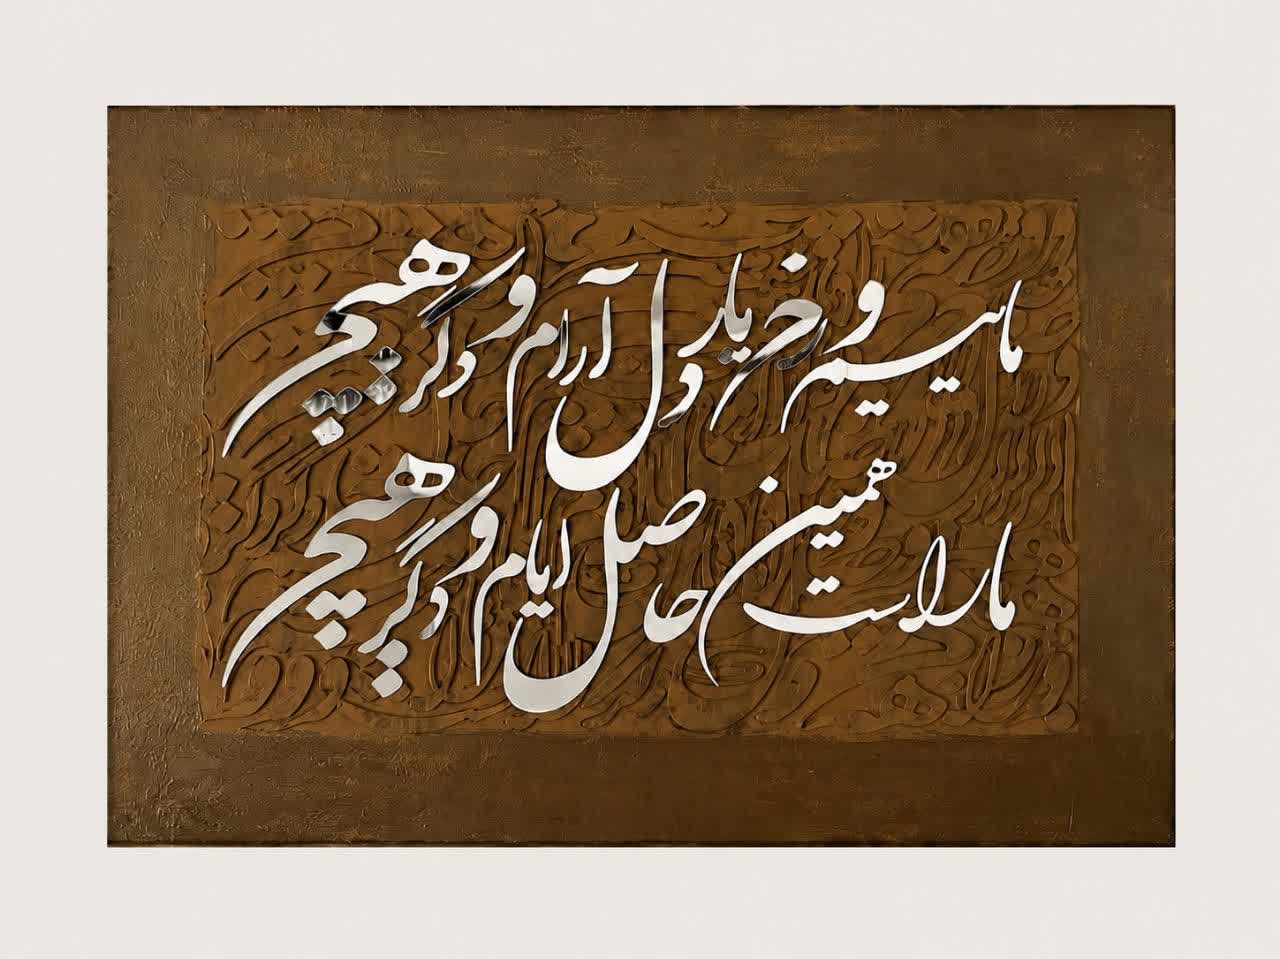 ماییم و رخ یار دل آرام و دگر هیچ
ما راست همین حاصل ایام و دگر هیچ